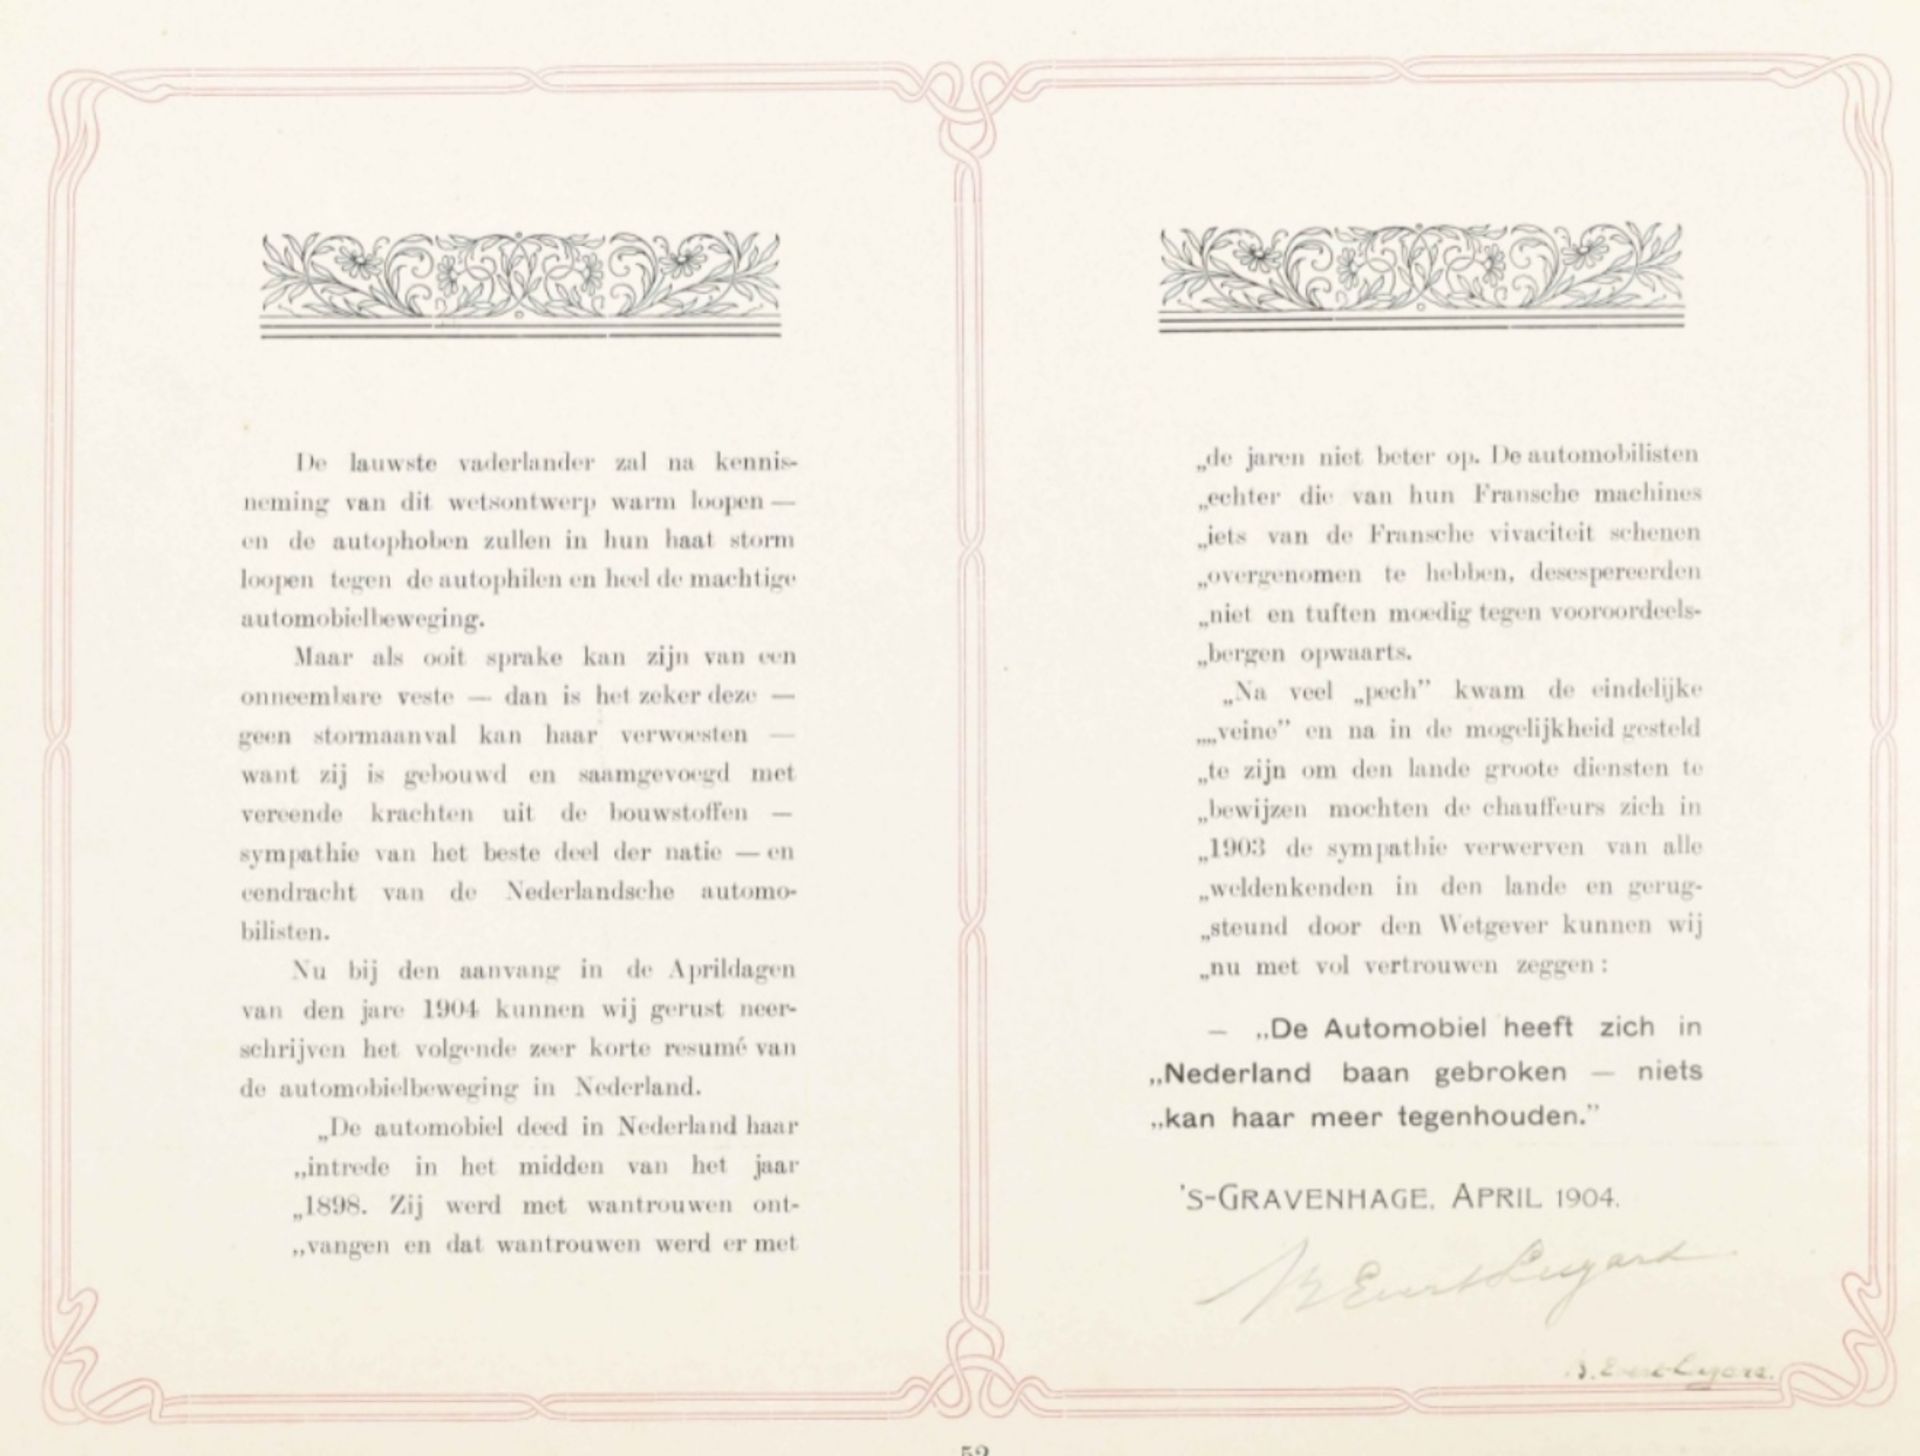 De lauwste vaderlander zal na kennis-
neming van dit wetsontwerp warm loopen —
en de autophoben zullen in hun haat storm
loopen tegen de autophilen en heel de machtige
automobielbeweging.
Maar als ooit sprake kan zijn van een
onneembare veste — dan is het zeker deze —
geen stormaanval kan haar verwoesten —
want zij is gebouwd en saamgevoegd met
vereende krachten uit de bouwstoffen —
sympathie van het beste deel der natie — en
eendracht van de Nederlandsche automo-
bilisten.
Nu bij den aanvang in de Aprildagen
van den jare 1904 kunnen wij gerust neer-
schrijven het volgende zeer korte resumé van
de automobielbeweging in Nederland.
„De automobiel deed in Nederland haar
„intrede in het midden van het jaar
„1898. Zij werd met wantrouwen ont-
„vangen en dat wantrouwen werd er met
„de jaren niet beter op. De automobilisten
„echter die van hun Fransche machines
„iets van de Fransche vivaciteit schenen
„overgenomen te hebben, desespereerden
„niet en tuften moedig tegen vooroordeels-
„bergen opwaarts.
„Na veel „pech” kwam de eindelijke
„„veine” en na in de mogelijkheid gesteld
„te zijn om den lande groote diensten te
„bewijzen mochten de chauffeurs zich in
„1903 de sympathie verwerven van alle
„weldenkenden in den lande en gerug-
„steund door den Wetgever kunnen wij
„nu met vol vertrouwen zeggen:
— „De Automobiel heeft zich in
„Nederland baan gebroken — niets
„kan haar meer tegenhouden.”
'S-GRAVENHAGE, APRIL 1904.
52